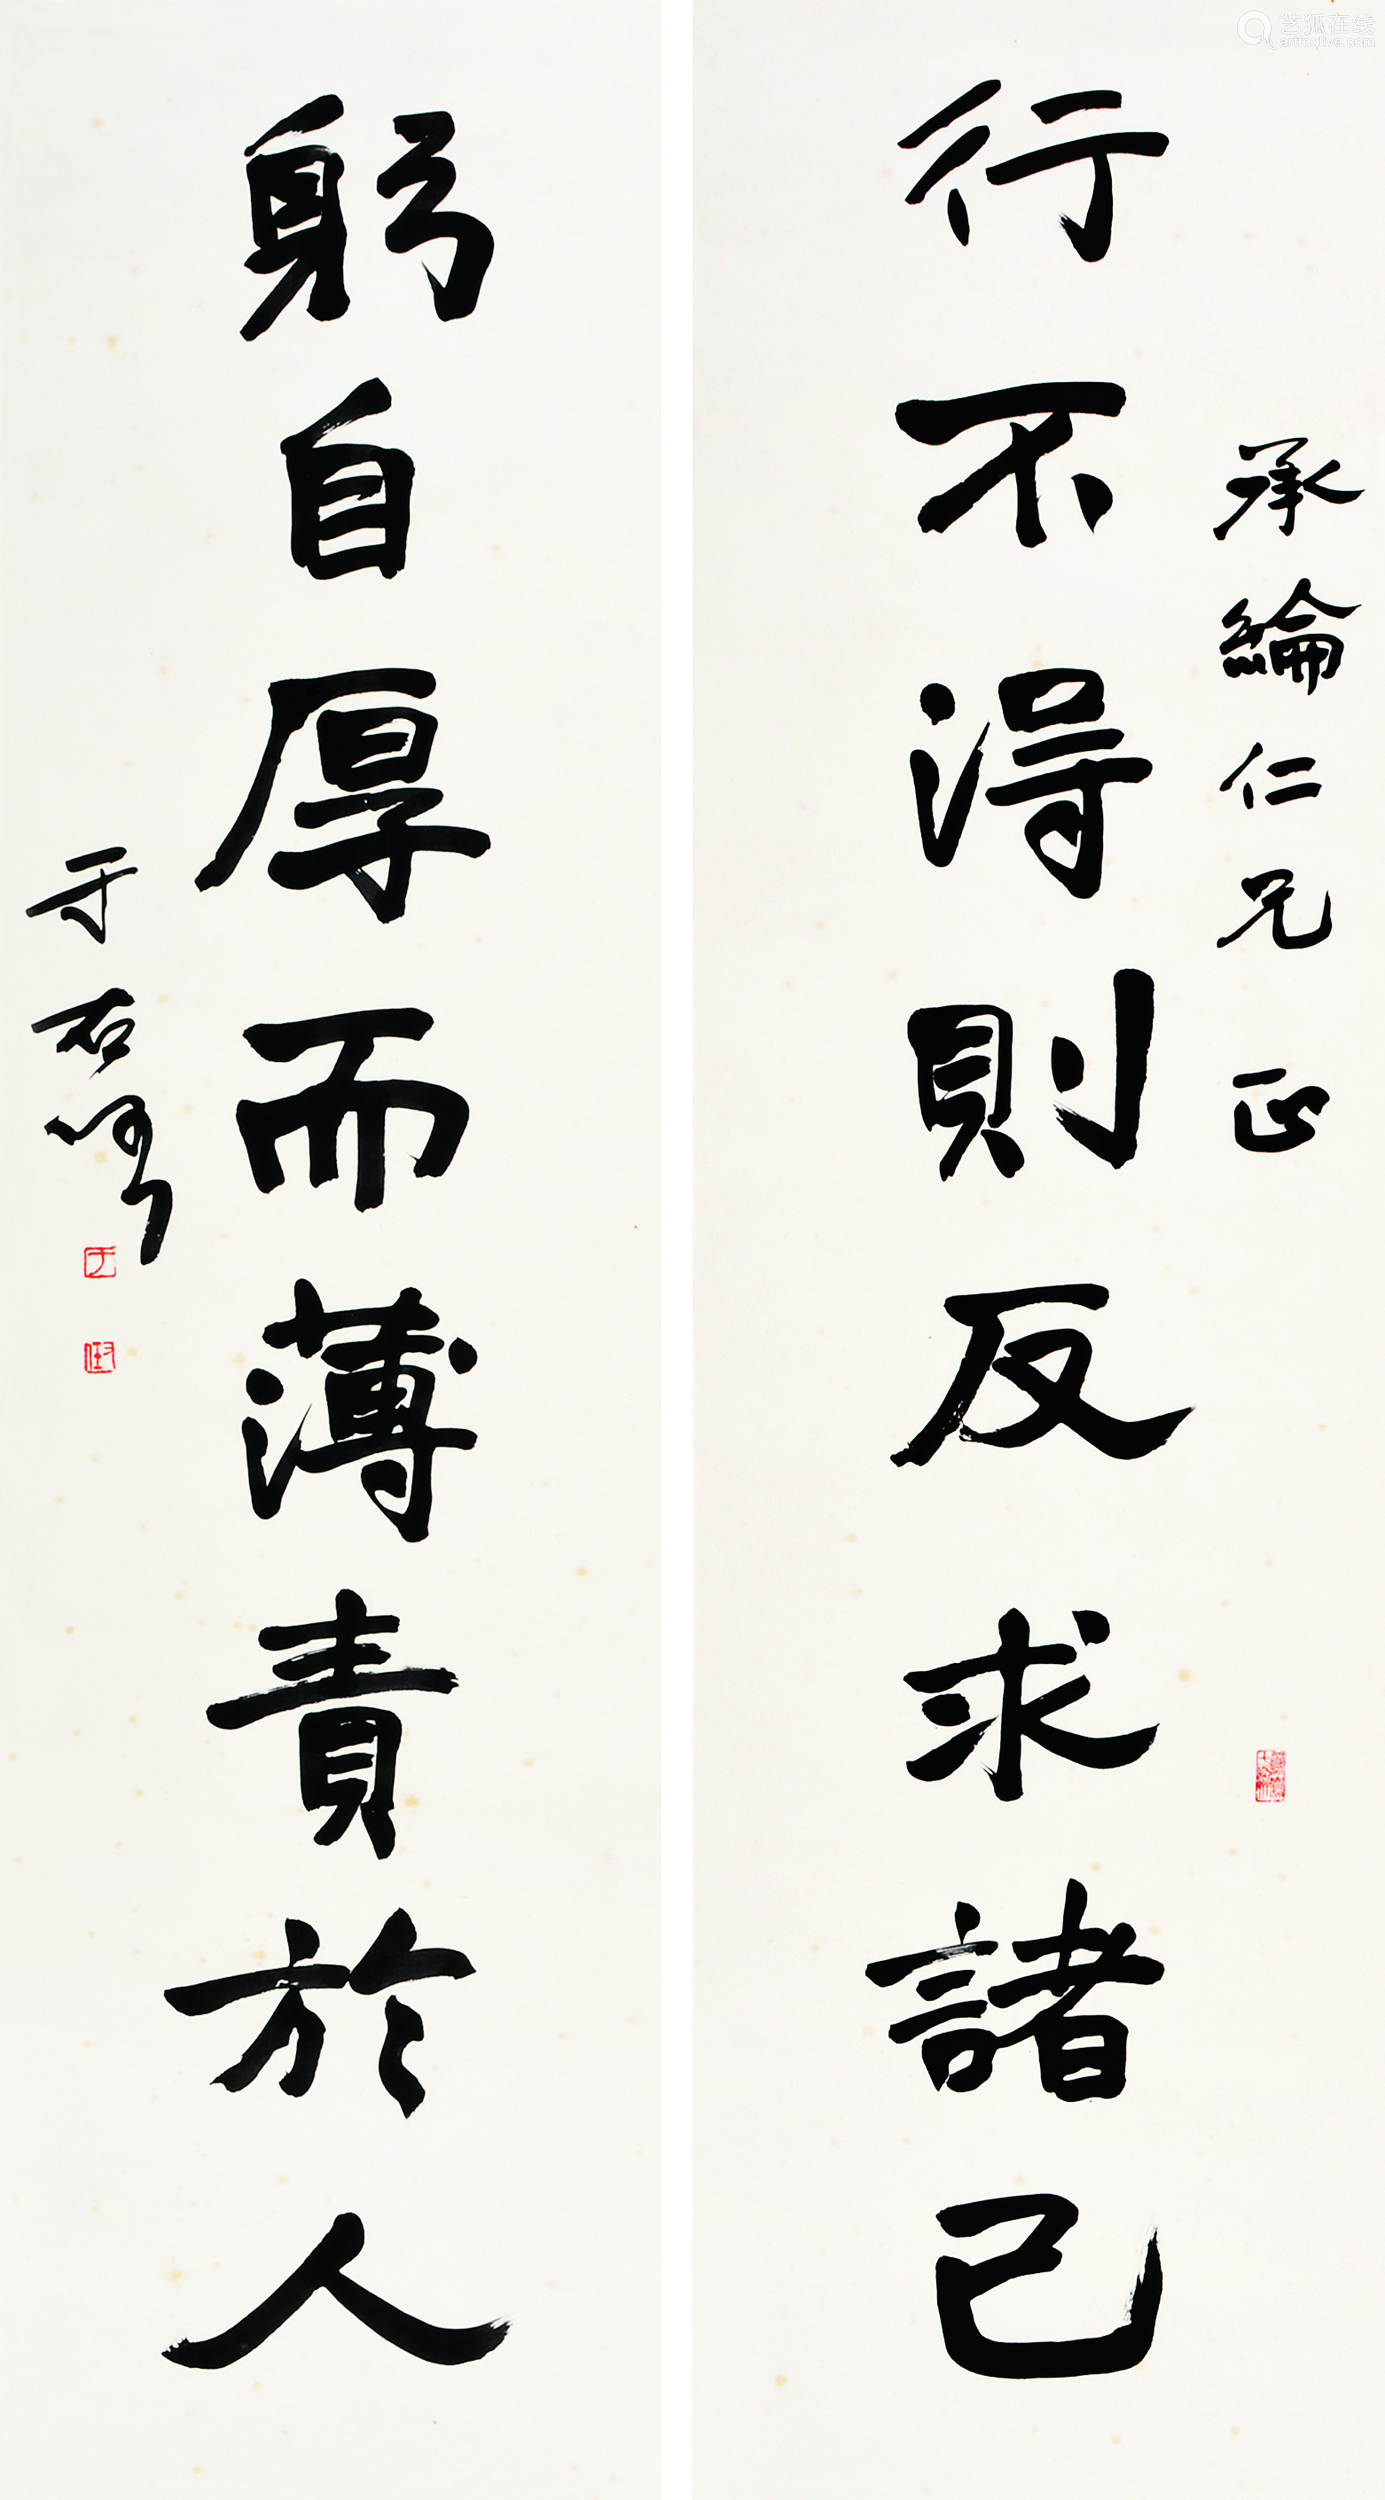 艺狐在线
artfoxlive.com
承綸仁兄正
行不得則反求諸己
躬自厚而薄責於人
于右任